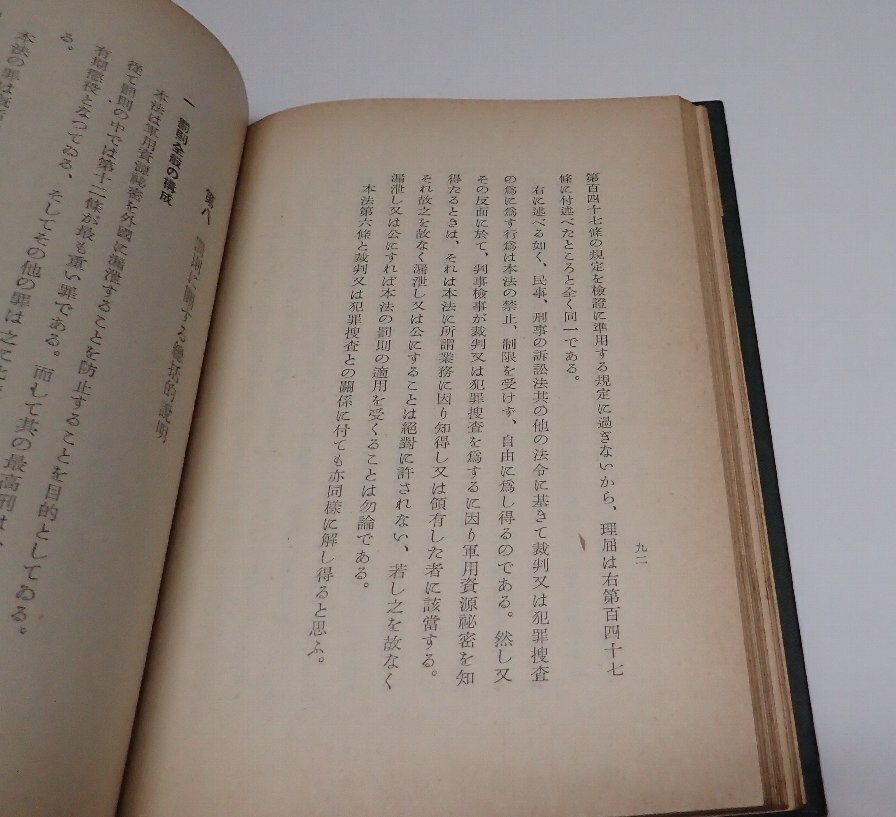 九二
第百四十七條の規定を檢證に準用する規定に過ぎないから、理屈は右第百四十七
條に付述べたところと全く同一である。
右に述べる如く、民事、刑事の訴訟法其の他の法令に基きて裁判又は犯罪搜査
の爲に爲す行爲は本法の禁止、制限を受けず、自由に爲し得るのである。然し又
その反面に於て、判事檢事が裁判又は犯罪搜査を爲するに因り軍用資源祕密を知
得たるときは、それは本法に所謂業務に因り知得し又は領有した者に該當する。
それ故之を故なく漏泄し又は公にすることは絕對に許されない、若し之を故なく
漏泄し又は公にすれば本法の罰則の適用を受くることは勿論である。
本法第六條と裁判又は犯罪搜査との關係に付ても亦同樣に解し得ると思ふ。
第八 罰則に關する總括的說明
一 罰則全般の構成
本法は軍用資源祕密を外國に漏泄することを防止することを目的としてゐる。
從て罰則の中では第十二條が最も重い罪である。而して其の最高刑は、
有期懲役となつてゐる、そしてその他の罪は之に比
る。
本法の罪は